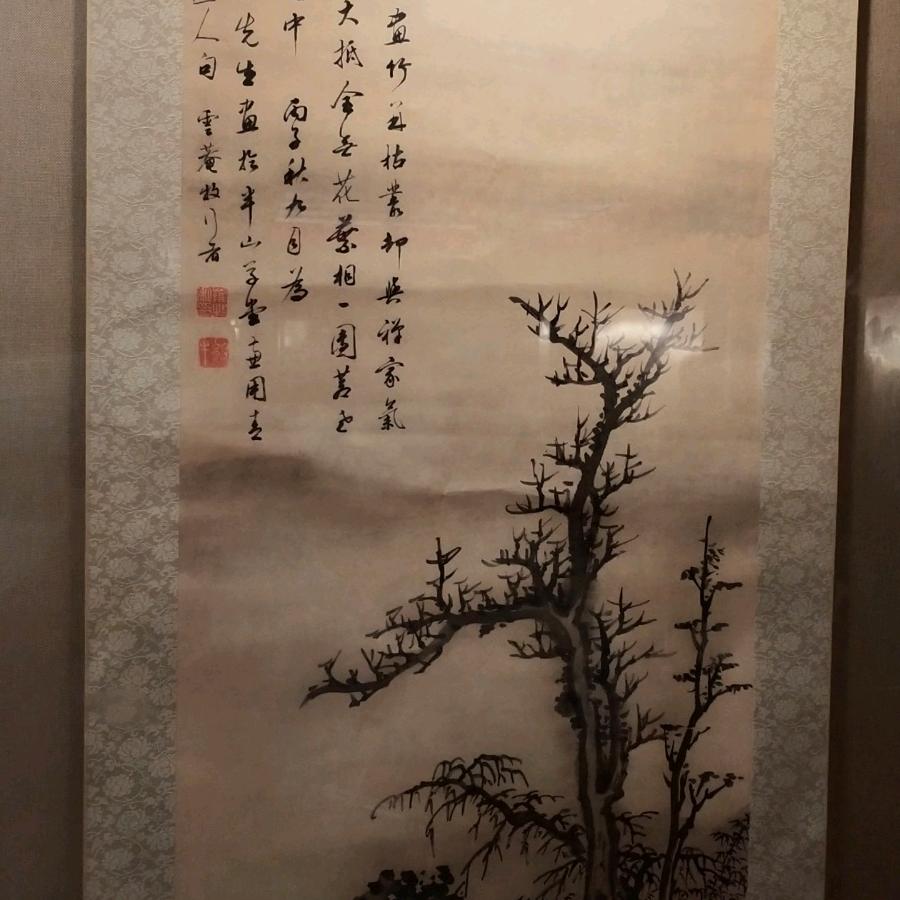 畫竹兼枯叢却與禪家氣
大抵全無花葉相一團蒼老
中 丙子秋九月為
先生畫於半山草堂並用
人句 雲菴牧行者